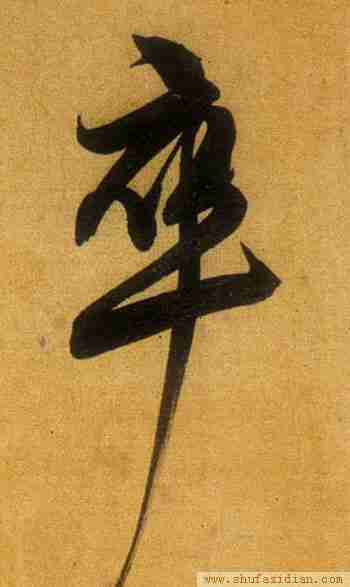 卒
www.shufazidian.com